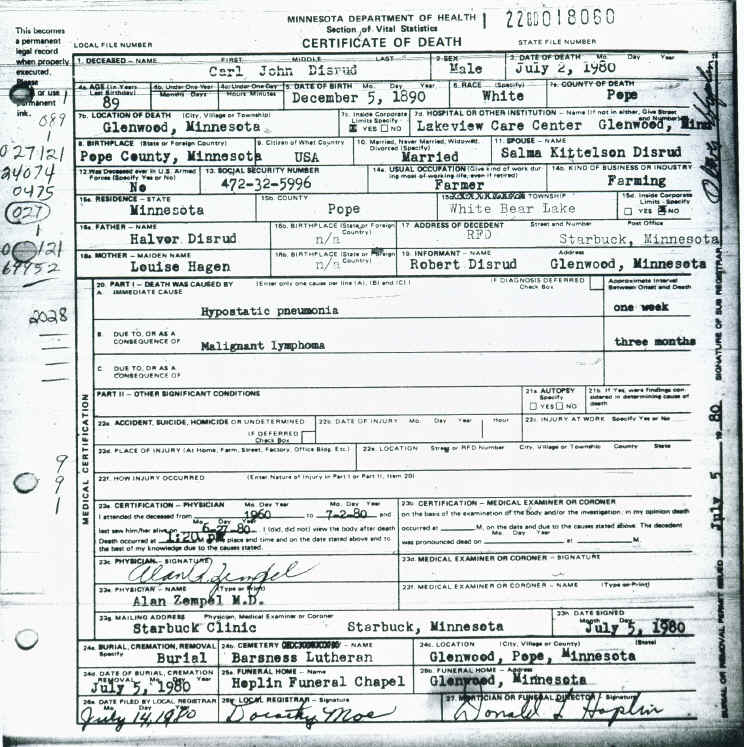 MINNESOTA DEPARTMENT OF HEALTH
Section of Vital Statistics
CERTIFICATE OF DEATH
This becomes
a permanent
legal record
when properly
executed.
Please
or use
permanent
ink.
LOCAL FILE NUMBER
STATE FILE NUMBER
1. DECEASED – NAME FIRST MIDDLE LAST
Carl John Disrud
2. SEX
Male
3. DATE OF DEATH Mo. Day Year
July 2, 1980
4a. AGE (In Years Last Birthday)
89
4b. Under One Year
Months Days
4c. Under One Day
Hours Minutes
5. DATE OF BIRTH Mo. Day Year
December 5, 1890
6. RACE (Specify)
White
7a. COUNTY OF DEATH
Pope
7b. LOCATION OF DEATH (City, Village or Township)
Glenwood, Minnesota
7c. Inside Corporate Limits Specify
YES NO
7d. HOSPITAL OR OTHER INSTITUTION – Name (If not in either, Give Street and Number)
Lakeview Care Center Glenwood, Minn
8. BIRTHPLACE (State or Foreign Country)
Pope County, Minnesota
9. Citizen of What Country
USA
10. Married, Never Married, Widowed, Divorced (Specify)
Married
11. SPOUSE – NAME
Salma Kittelson Disrud
12. Was Deceased ever in U.S. Armed Forces (Specify Yes or No)
No
13. SOCIAL SECURITY NUMBER
472-32-5996
14a. USUAL OCCUPATION (Give kind of work during most of working life, even if retired)
Farmer
14b. KIND OF BUSINESS OR INDUSTRY
Farming
15a. RESIDENCE – STATE
Minnesota
15b. COUNTY
Pope
TOWNSHIP
White Bear Lake
15d. Inside Corporate Limits - Specify
YES NO
16a. FATHER – NAME
Halvor Disrud
16b. BIRTHPLACE (State or Foreign Country)
n/a
17 ADDRESS OF DECEDENT Street and Number Post Office
RFD Starbuck, Minnesota
18a. MOTHER – MAIDEN NAME
Louise Hagen
18b. BIRTHPLACE (State or Foreign Country)
n/a
19. INFORMANT – NAME Address
Robert Disrud Glenwood, Minnesota
20. PART I – DEATH WAS CAUSED BY (Enter only one cause per line (A), (B) and (C))
IF DIAGNOSIS DEFERRED Check Box
Approximate Interval Between Onset and Death
A IMMEDIATE CAUSE
Hypostatic pneumonia one week
B DUE TO, OR AS A CONSEQUENCE OF
Malignant lymphoma three months
C DUE TO, OR AS A CONSEQUENCE OF
PART II – OTHER SIGNIFICANT CONDITIONS
21a AUTOPSY Specify
YES NO
21b. If Yes, were findings considered in determining cause of death
22a. ACCIDENT, SUICIDE, HOMICIDE OR UNDETERMINED
IF DEFERRED Check Box
22b. DATE OF INJURY Mo. Day Year Hour
22c. INJURY AT WORK Specify Yes or No
22d. PLACE OF INJURY (At Home, Farm, Street, Factory, Office Bldg. Etc.)
22e. LOCATION Street or RFD Number City, Village or Township County State
22f. HOW INJURY OCCURRED (Enter Nature of Injury in Part I or Part II, Item 20)
MEDICAL CERTIFICATION
23a. CERTIFICATION – PHYSICIAN Mo. Day Year
I attended the deceased from 1960 to 7-2-80 and
last saw him/her alive on 6-27-80. I (did, did not) view the body after death
Death occurred at 1:20 place and time and on the date stated above and to
the best of my knowledge due to the causes stated.
23b CERTIFICATION – MEDICAL EXAMINER OR CORONER
on the basis of the examination of the body and/or the investigation, in my opinion death
occurred at M, on the date and due to the causes stated above. The decedent
was pronounced dead on Mo. Day Year at M.
23c PHYSICIAN – SIGNATURE)
Alan Zempel
23d. MEDICAL EXAMINER OR CORONER – SIGNATURE
23e. PHYSICIAN – NAME (Type or Print)
Alan Zempel M.D.
23f. MEDICAL EXAMINER OR CORONER – NAME (Type or Print)
23g. MAILING ADDRESS Physician, Medical Examiner or Coroner
Starbuck Clinic Starbuck, Minnesota
23h. DATE SIGNED Month Day
July 5, 1980
24a. BURIAL, CREMATION, REMOVAL Specify
Burial
24b. CEMETERY – NAME
Barsness Lutheran
24c. LOCATION (City, Village or County) (State)
Glenwood, Pope, Minnesota
24d. DATE OF BURIAL, CREMATION REMOVAL Mo. Day Year
July 5, 1980
25a. FUNERAL HOME – NAME
Hoplin Funeral Chapel
25b. FUNERAL HOME – Address
Glenwood, Minnesota
26a. DATE FILED BY LOCAL REGISTRAR Mo Day Year
July 14, 1980
26b. LOCAL REGISTRAR – Signature
Dorothy Moe
27. MORTICIAN OR FUNERAL DIRECTOR – Signature
Donald L Hoplin
689
1
027121
24074
0475
027
121
69952
2028
9
9
1
SIGNATURE OF SUB REGISTRAR
July 5 1980
BURIAL OR REMOVAL PERMIT ISSUED